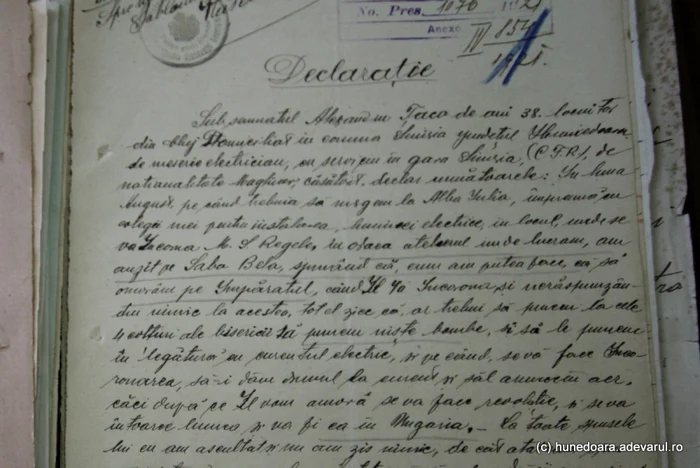 No. Pres. 1070 1921
Anexe
IV 854
1921.
Declarație
Subsemnatul Alexandru Taca de ani 38. locuitor
din Cluj Domiciliat in comuna Simiria județul Hunedoara
de meserie electrician, cu serviciu in gara Simiria, (C.F.R), de
naționalitate Maghiar, căsătorit declar următoarele: In luna
August, pe când trebuia să mergem la Alba Iulia, împreună cu
colegii mei pentru instalarea luminei electrice, in locul unde se
va Incorona M. S Regele, in odaca atelierul unde lucram, am
auzit pe Sabo Bela, spunând că, cum am putea face, ca să
omorâm pe Împăratul, când El va Incorona și nerăspunzân-
du-i nimic la acestea, tot el zice că, ar trebui să punem la cele
4 colțuri ale bisericii să punem niște bombe, și să le punem
in legătură cu curentul electric, și pe când, se va face Inco-
ronarea, să-i dăm drumul la curent și să-l aruncăm aer,
căci după ce Il vom amorâ se va face revoluție, și se va
intoarce lumea și va fi ca in Ungaria. - La toate spusele
lui eu am ascultat și nu am zis nimic, de cât
(c) hunedoara.adevarul.ro